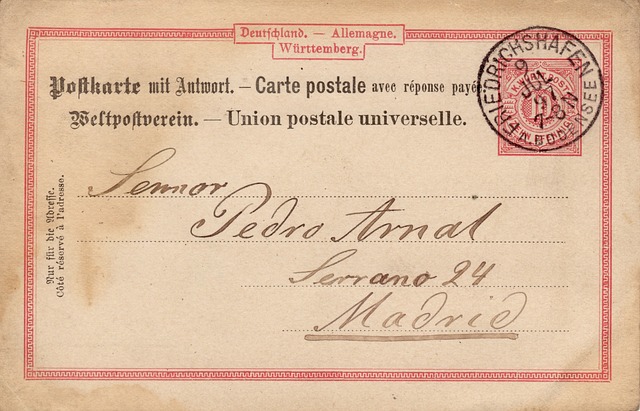 Deutschland. — Allemagne.
Württemberg.
Postkarte mit Antwort. — Carte postale avec réponse payée
Weltpostverein. — Union postale universelle.
FRIEDRICHSHAFEN
9
JUL
91
7-8 N
A BODENSEE
Nur für die Adresse.
Côté réservé à l'adresse.
Sennor
Pedro Arnal
Serrano 24
Madrid